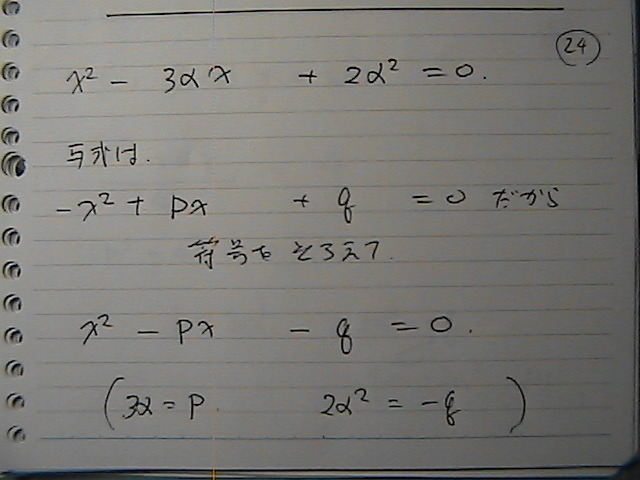 24
x² - 3αx + 2α² = 0.
与式は.
-x² + px + q = 0 だから
符号をそろえて.
x² - px - q = 0.
(3α = p. 2α² = -q)